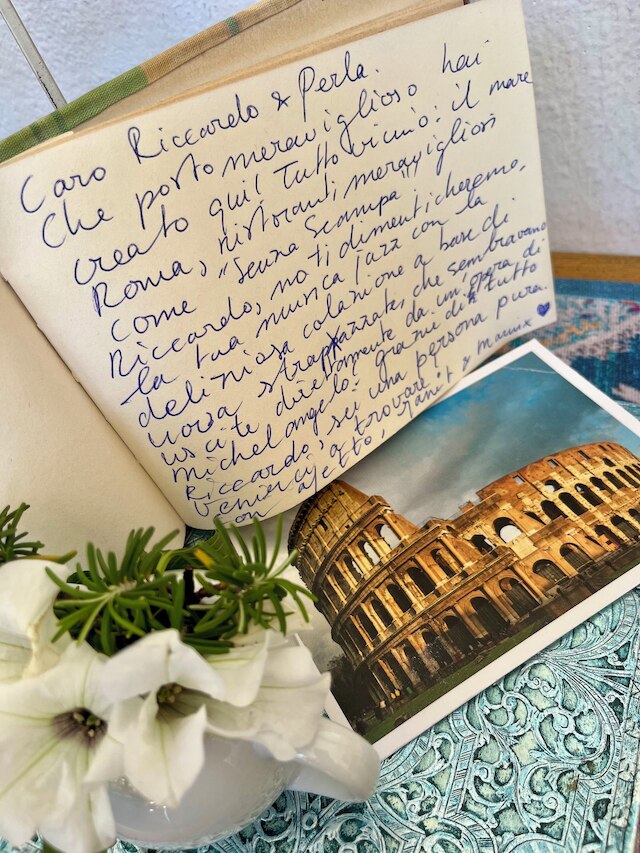 Caro Riccardo & Perla.
Che posto meraviglioso hai
creato qui! Tutto vicino: il mare
Roma, ristoranti meravigliosi
come "Senza Scampa"
Riccardo, no ti dimenticheremo,
la tua musica jazz con la
deliziosa colazione a base di
uova strappazzate, che sembravano
uscite direttamente da un'opera di
Michelangelo. grazie di tutto
Riccardo, sei una persona pura.
Venirci a trovare!
con affetto, & Marnix